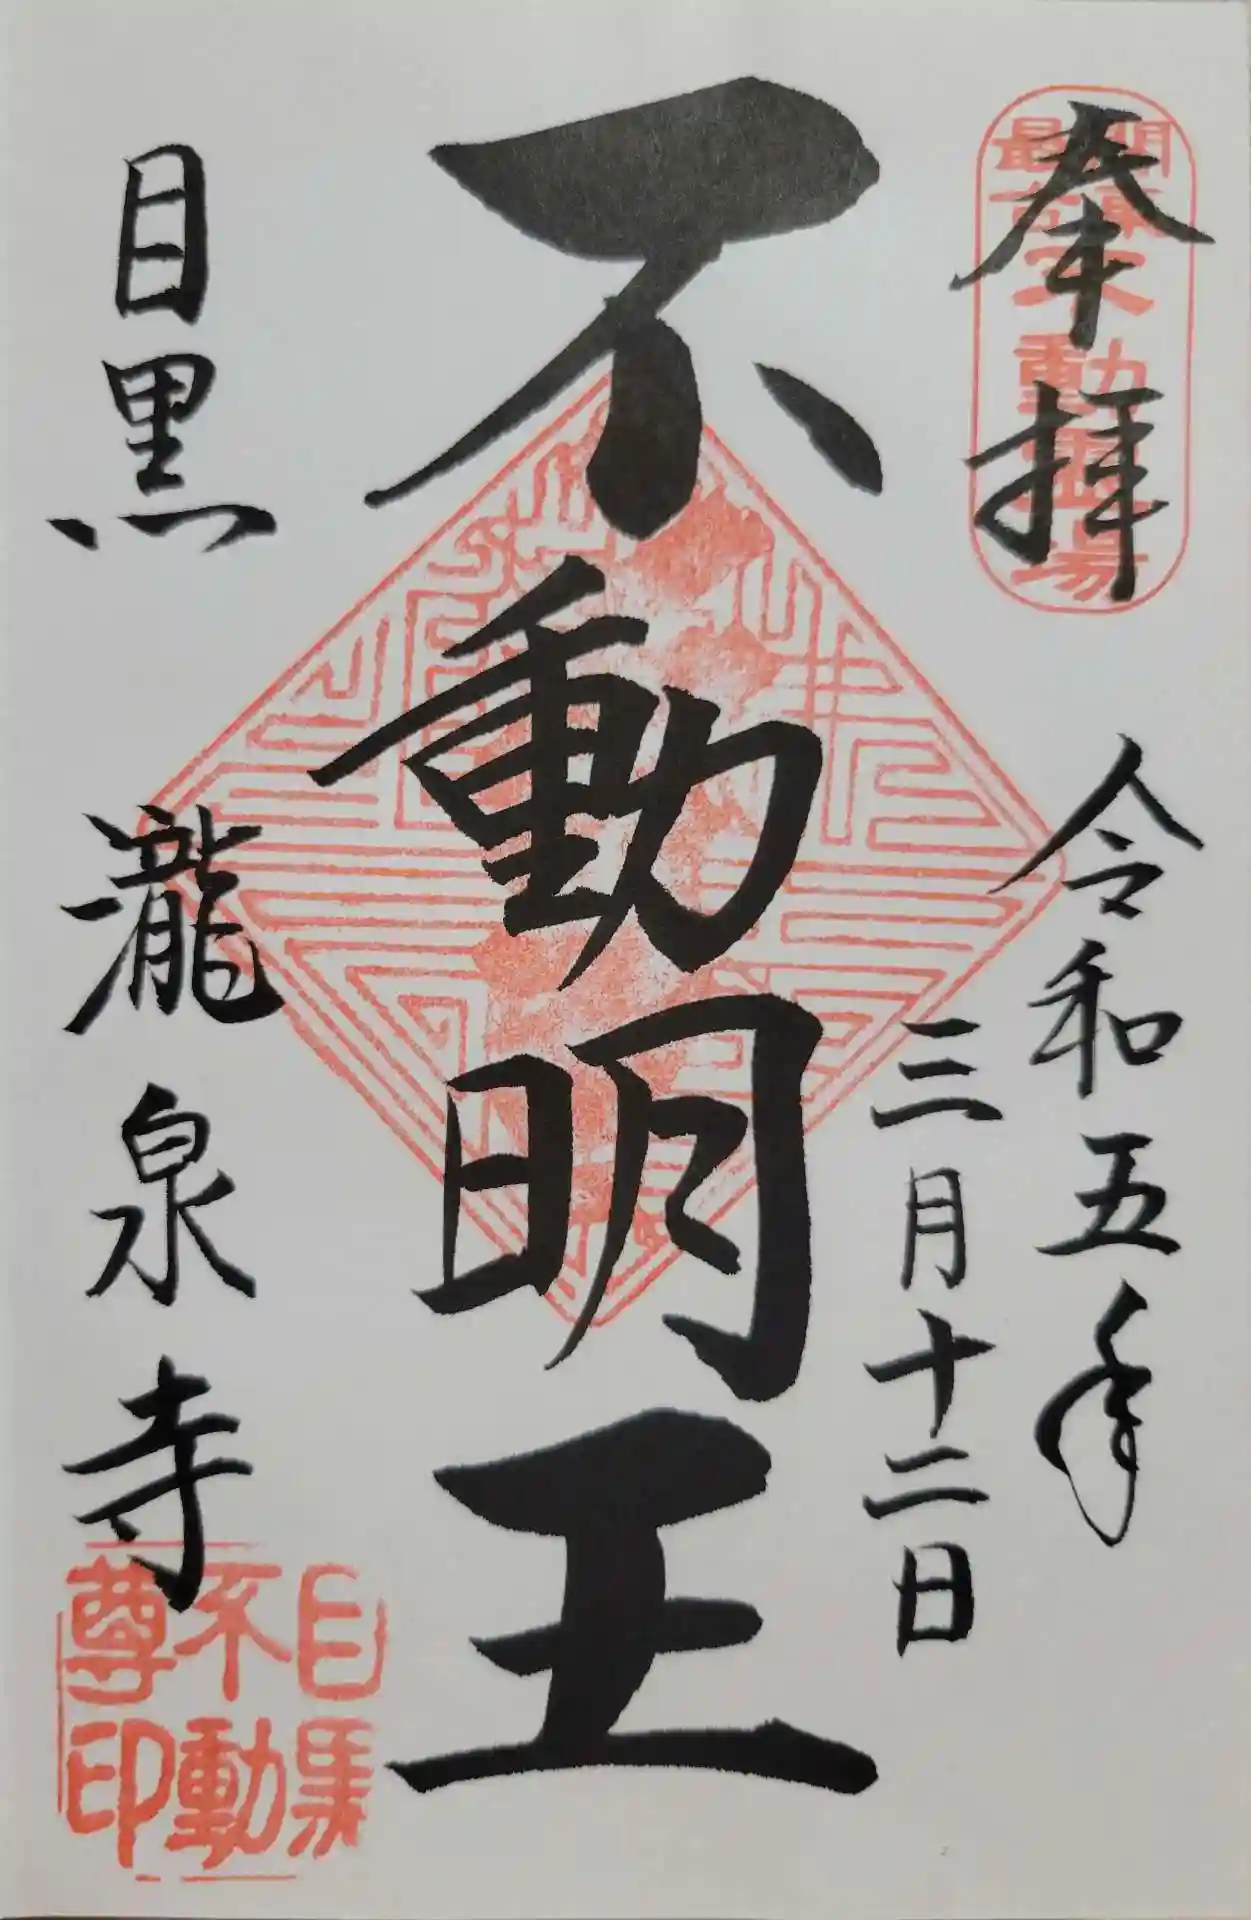 奉拝
関東最古不動霊場
令和五年
三月十二日
不動明王
目黒 瀧泉寺
目黒不動尊印